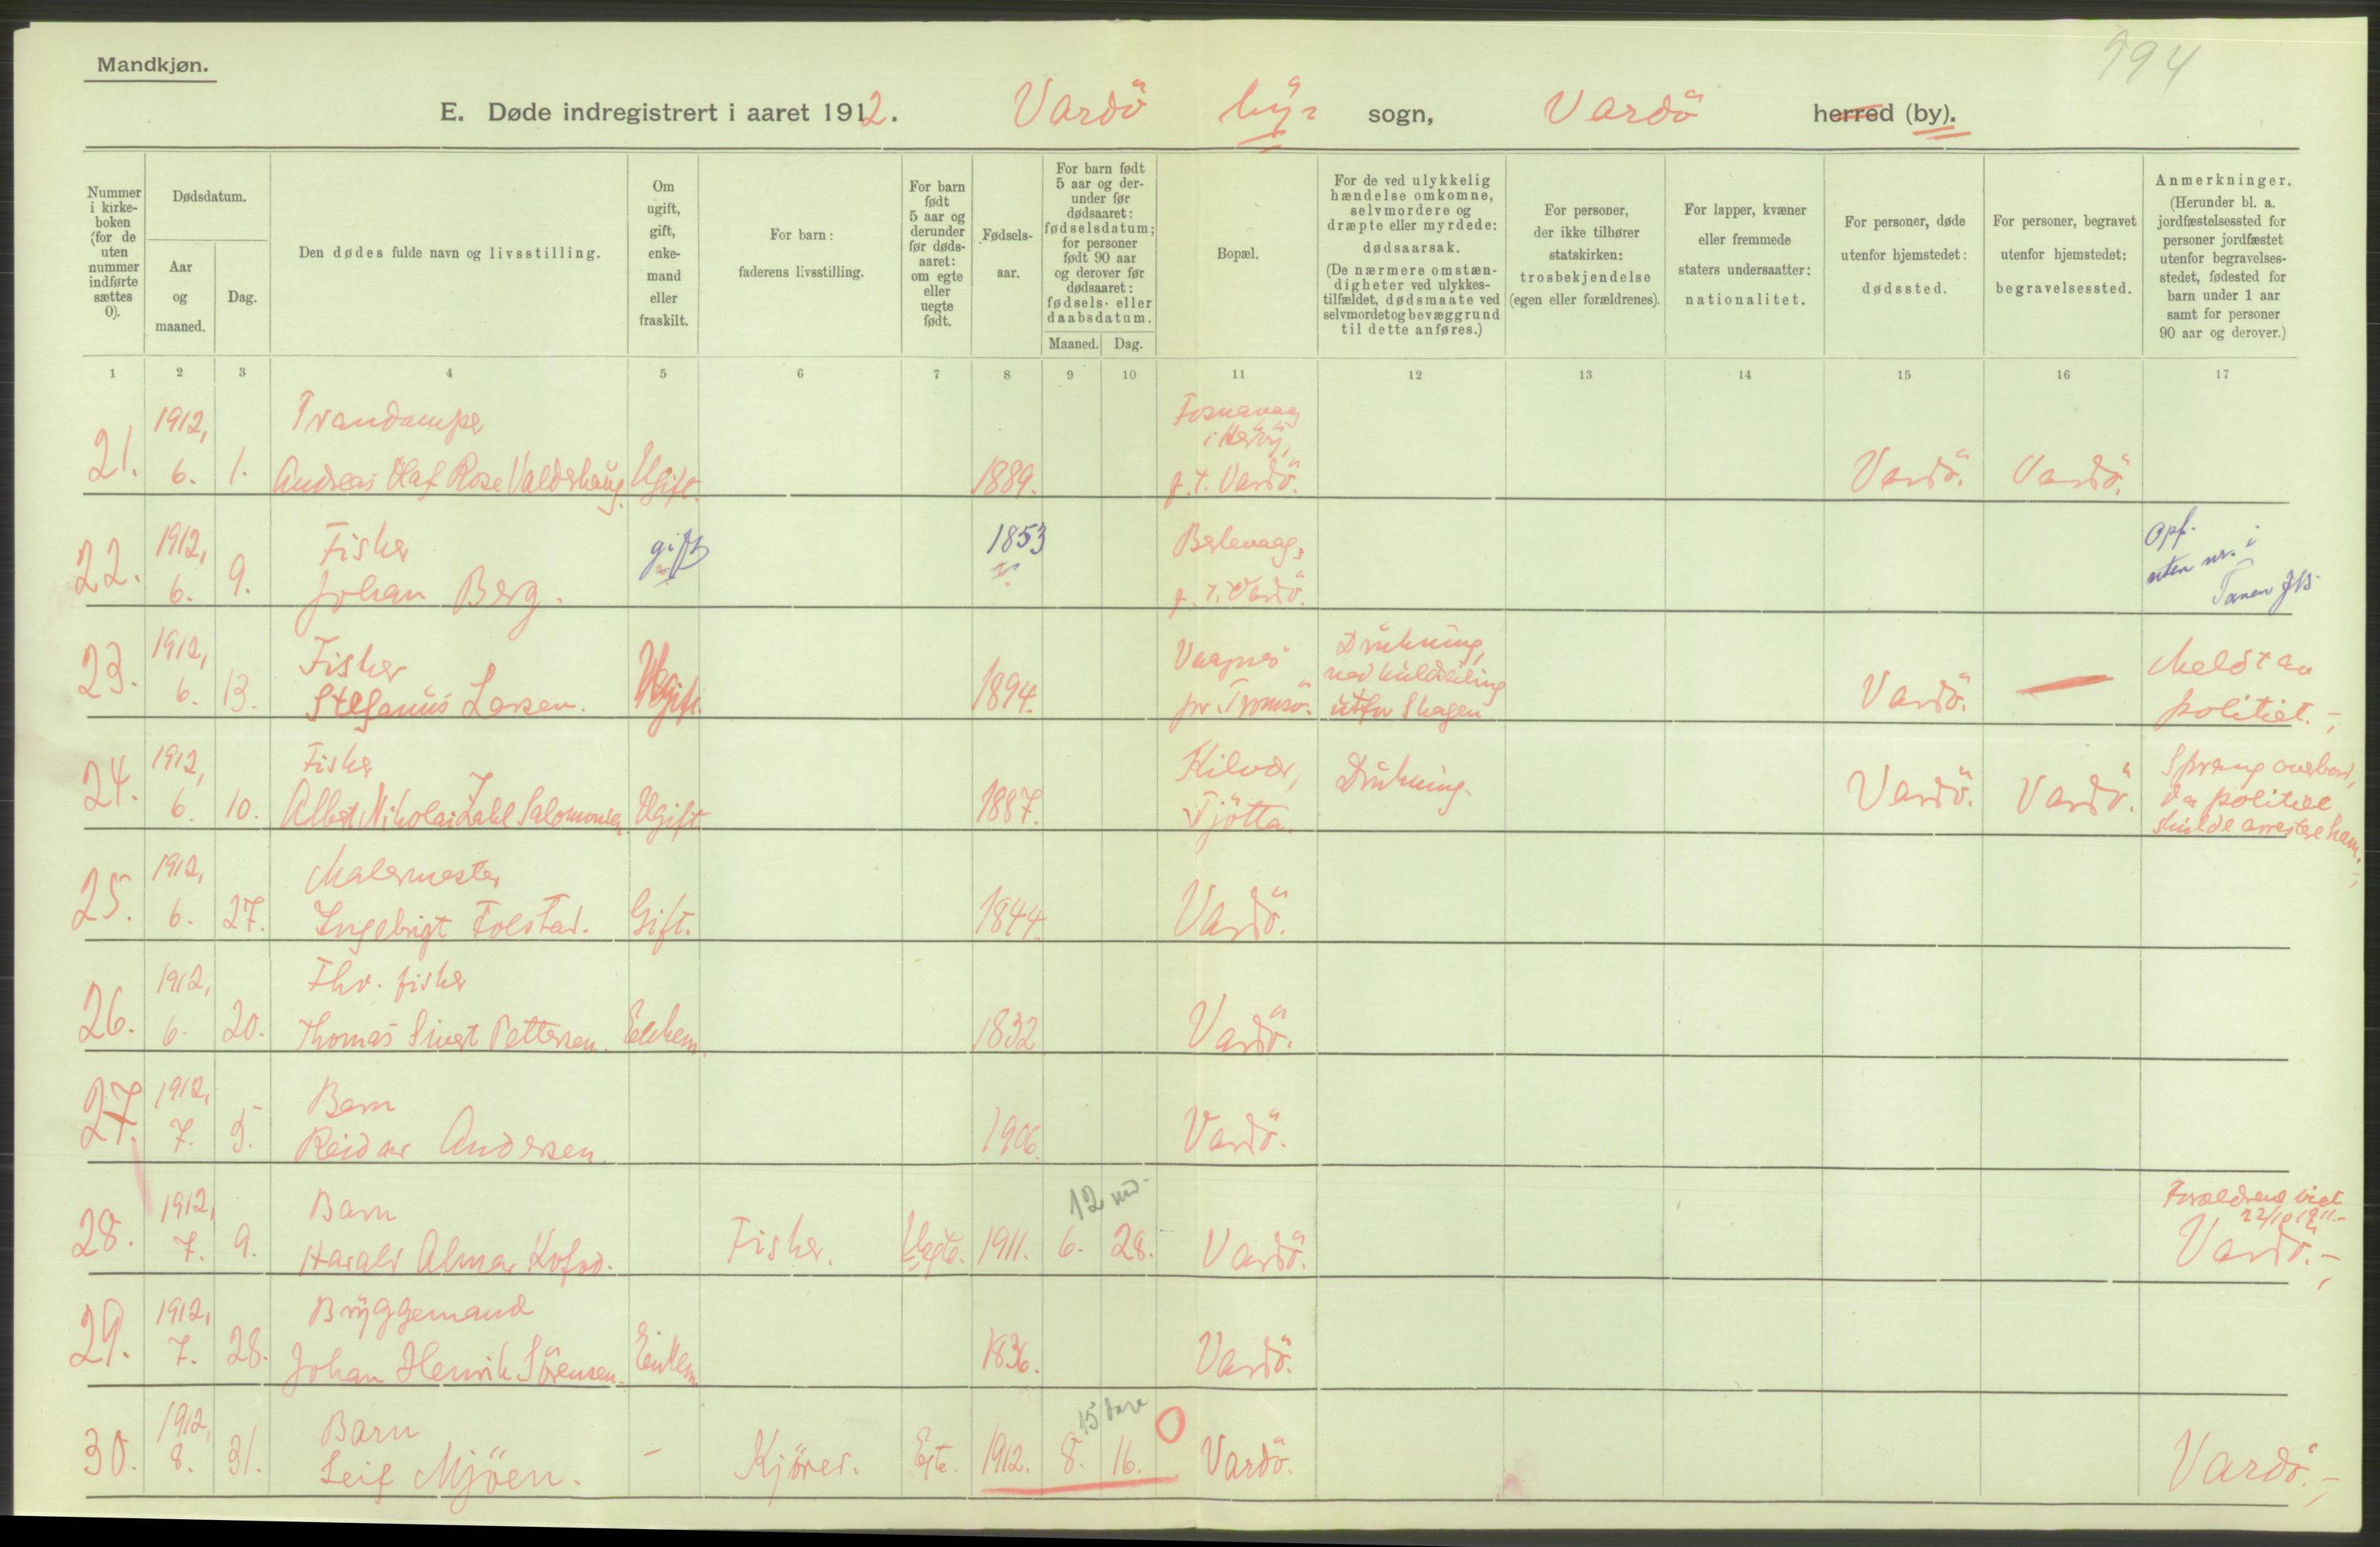 Mandkjøn.
994
E. Døde indregistrert i aaret 1912. Vardö by- sogn, Vardö herred (by).
Nummer i kirke- boken (for de uten nummer indførte sættes 0).
Dødsdatum.
Aar og maaned.
Dag.
Den dødes fulde navn og livsstilling.
Om ugift, gift, enke- mand eller fraskilt.
For barn: faderens livsstilling.
For barn født 5 aar og derunder før døds- aaret: om egte eller uegte født.
Fødsels- aar.
For barn født 5 aar og der- under før dødsaaret: fødselsdatum; for personer født 90 aar og derover før dødsaaret: fødsels- eller daabsdatum.
Maaned. Dag.
Bopæl.
For de ved ulykkelig hændelse omkomne, selvmordere og dræpte eller myrdede: dødsaarsak. (De nærmere omstæn- digheter ved ulykkes- tilfældet, dødsmaate ved selvmordet og bevæggrund til dette anføres.)
For personer, der ikke tilhører statskirken: trosbekjendelse (egen eller forældrenes).
For lapper, kvæner eller fremmede staters undersaatter: nationalitet.
For personer, døde utenfor hjemstedet: dødssted.
For personer, begravet utenfor hjemstedet: begravelsessted.
Anmerkninger. (Herunder bl. a. jordfæstelsessted for personer jordfæstet utenfor begravelses- stedet, fødested for barn under 1 aar samt for personer 90 aar og derover.)
1 2 3 4 5 6 7 8 9 10 11 12 13 14 15 16 17
1912, Trandamper Fosnavaag
i Heröy,
21. 6. 1. Andreas Olaf Rose Valdershaug. Ugift. 1889. p. t. Vardö. Vardö. Vardö.
1912, Fisker gift 1853 Berlevaag, Opf.
uten nr. i
22. 6. 9. Johan Berg. p. t. Vardö. Tanen
1912, Fisker Vaagnes Drukning, Meldt av
ved kuldseiling
23. 6. 13. Stefanus Larsen. Ugift. 1894. pr. Tromsö. utfor Skagen Vardö. — politiet.-
1912, Fisker Kilvær, Drukning. Sprang overbord,
da politiet
24. 6. 10. Albert Nikolai Zahl Salomonsen. Ugift 1887. Tjötta. Vardö. Vardö. skulde arrestere ham.-
1912, Malermester
25. 6. 27. Ingebrigt Tolstad. Gift. 1844. Vardö.
1912, Fhv. fisker
26. 6. 20. Thomas Sivert Pettersen. Enkem. 1832 Vardö.
27 1912, Barn
27. 7. 5. Reidar Andersen. 1906. Vardö.
1912, Barn 12 md. Forældrene viet
22/10 1911.-
28. 7. 9. Harald Almar Kofod. Fisker. Uegte. 1911. 6. 28. Vardö. Vardö.-
1912, Bryggemand
29. 7. 28. Johan Henrik Sörensen. Enkem. 1836. Vardö.
1912, Barn 15 dage
30. 8. 31. Leif Mjöen. - Kjörer. Egte. 1912. 8. 16. 0 Vardö. Vardö.-